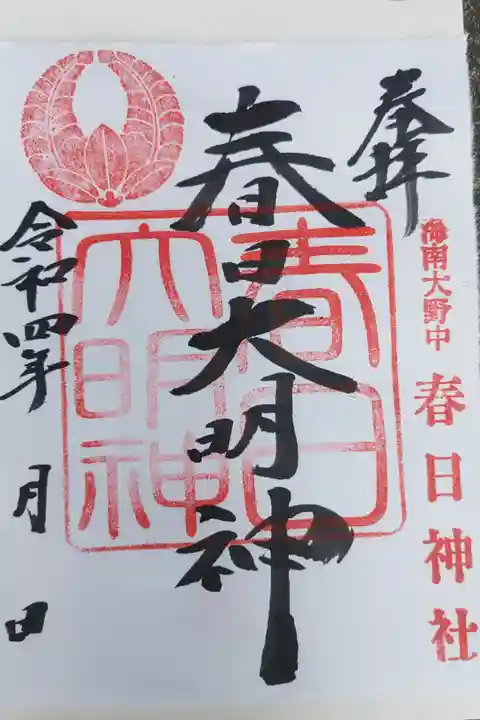 奉拝
海南大野中 春日神社
春日大明神
春日大明神
令和四年 月 日